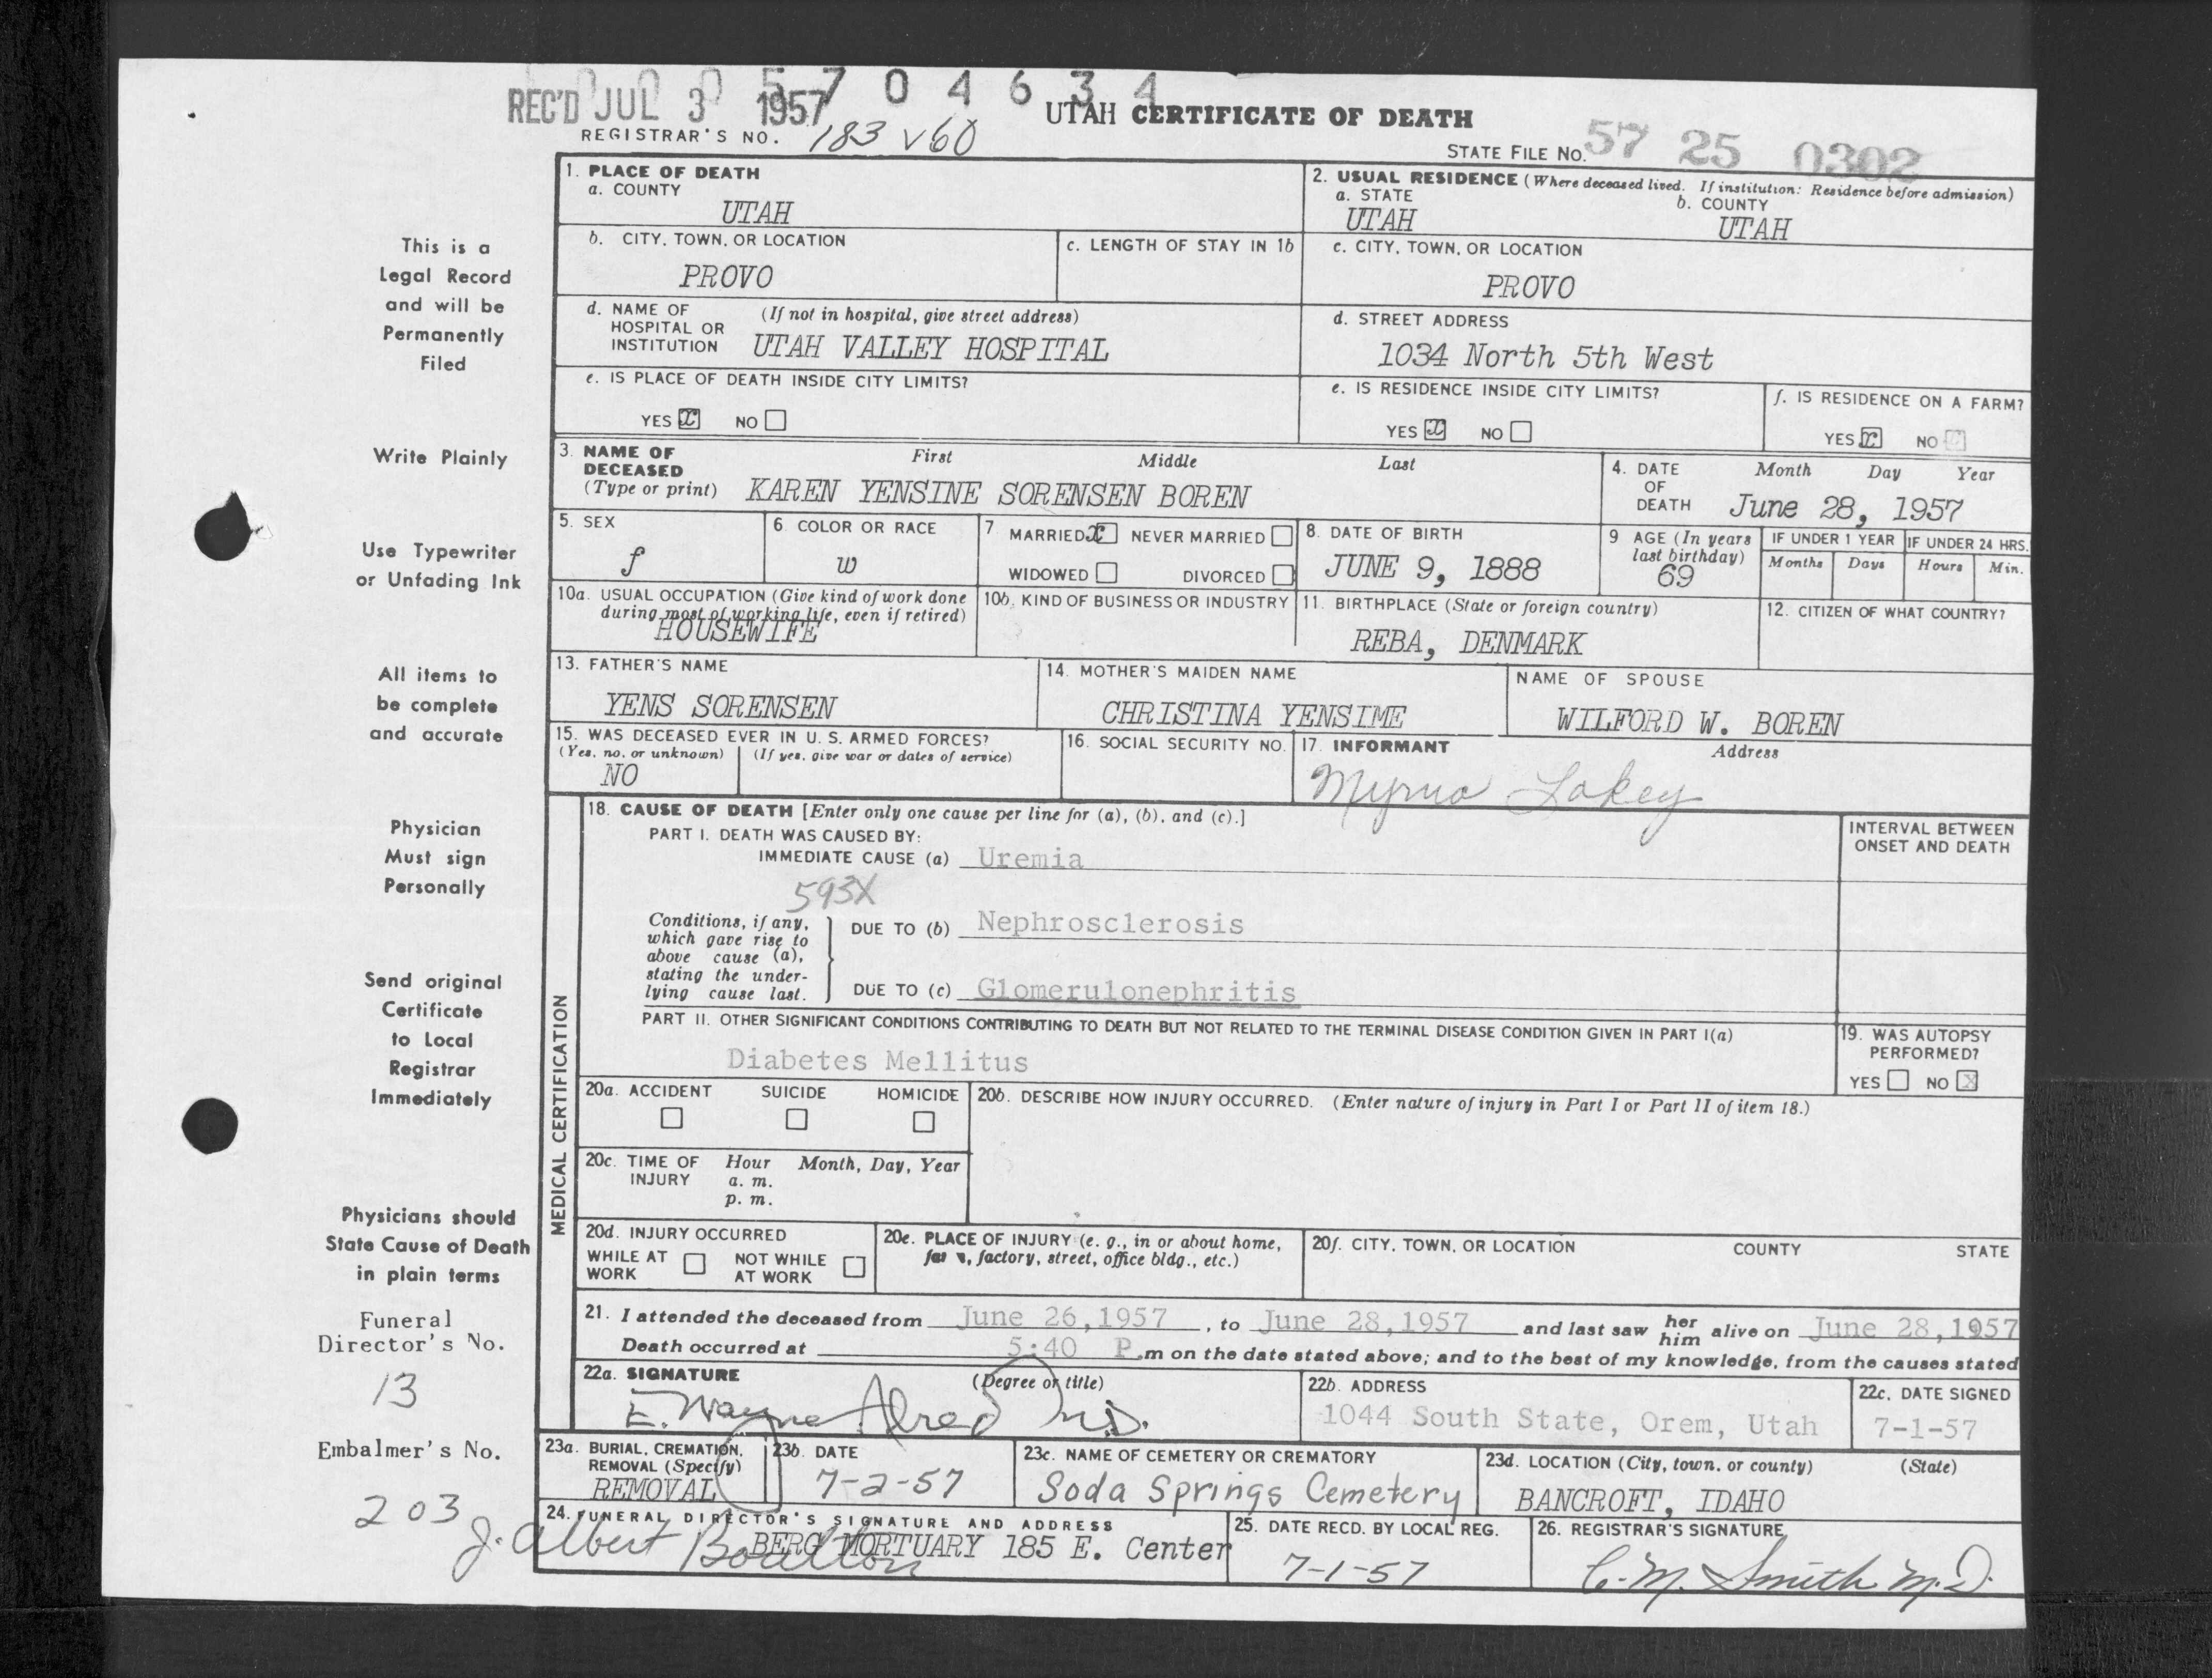 0 0 0 5 7 0 4 6 3 4
REC'D JUL 3 1957
UTAH CERTIFICATE OF DEATH
REGISTRAR'S NO. 183 v60
STATE FILE NO. 57 25 0302
1. PLACE OF DEATH
a. COUNTY
UTAH
2. USUAL RESIDENCE (Where deceased lived. If institution: Residence before admission)
a. STATE
UTAH
b. COUNTY
UTAH
b. CITY, TOWN, OR LOCATION
PROVO
c. LENGTH OF STAY IN 1b
c. CITY, TOWN, OR LOCATION
PROVO
d. NAME OF HOSPITAL OR INSTITUTION
(If not in hospital, give street address)
UTAH VALLEY HOSPITAL
d. STREET ADDRESS
1034 North 5th West
e. IS PLACE OF DEATH INSIDE CITY LIMITS?
YES x NO
e. IS RESIDENCE INSIDE CITY LIMITS?
YES x NO
f. IS RESIDENCE ON A FARM?
YES x NO
3. NAME OF DECEASED (Type or print)
First Middle Last
KAREN YENSINE SORENSEN BOREN
4. DATE OF DEATH
Month Day Year
June 28, 1957
5. SEX
f
6. COLOR OR RACE
w
7. MARRIED x NEVER MARRIED
WIDOWED DIVORCED
8. DATE OF BIRTH
JUNE 9, 1888
9 AGE (In years last birthday)
69
IF UNDER 1 YEAR
Months Days
IF UNDER 24 HRS.
Hours Min.
10a. USUAL OCCUPATION (Give kind of work done during most of working life, even if retired)
HOUSEWIFE
10b. KIND OF BUSINESS OR INDUSTRY
11. BIRTHPLACE (State or foreign country)
REBA, DENMARK
12. CITIZEN OF WHAT COUNTRY?
13. FATHER'S NAME
YENS SORENSEN
14. MOTHER'S MAIDEN NAME
CHRISTINA YENSIME
NAME OF SPOUSE
WILFORD W. BOREN
15. WAS DECEASED EVER IN U. S. ARMED FORCES?
(Yes, no, or unknown) (If yes, give war or dates of service)
NO
16. SOCIAL SECURITY NO.
17. INFORMANT Address
Myrna Lakey
MEDICAL CERTIFICATION
18. CAUSE OF DEATH [Enter only one cause per line for (a), (b), and (c).]
PART I. DEATH WAS CAUSED BY:
IMMEDIATE CAUSE (a) Uremia
593X
INTERVAL BETWEEN ONSET AND DEATH
Conditions, if any, which gave rise to above cause (a), stating the underlying cause last.
DUE TO (b) Nephrosclerosis
DUE TO (c) Glomerulonephritis
PART II. OTHER SIGNIFICANT CONDITIONS CONTRIBUTING TO DEATH BUT NOT RELATED TO THE TERMINAL DISEASE CONDITION GIVEN IN PART I(a)
Diabetes Mellitus
19. WAS AUTOPSY PERFORMED?
YES NO X
20a. ACCIDENT SUICIDE HOMICIDE
20b. DESCRIBE HOW INJURY OCCURRED. (Enter nature of injury in Part I or Part II of item 18.)
20c. TIME OF INJURY
Hour Month, Day, Year
a. m.
p. m.
20d. INJURY OCCURRED
WHILE AT WORK NOT WHILE AT WORK
20e. PLACE OF INJURY (e. g., in or about home, factory, street, office bldg., etc.)
20f. CITY, TOWN, OR LOCATION COUNTY STATE
21. I attended the deceased from June 26,1957, to June 28,1957 and last saw her him alive on June 28,1957
Death occurred at 5:40 P.m on the date stated above; and to the best of my knowledge, from the causes stated
22a. SIGNATURE (Degree or title)
E. Wayne Alred M.D.
22b. ADDRESS
1044 South State, Orem, Utah
22c. DATE SIGNED
7-1-57
23a. BURIAL, CREMATION, REMOVAL (Specify)
REMOVAL
23b. DATE
7-2-57
23c. NAME OF CEMETERY OR CREMATORY
Soda Springs Cemetery
23d. LOCATION (City, town, or county) (State)
BANCROFT, IDAHO
24. FUNERAL DIRECTOR'S SIGNATURE AND ADDRESS
J. Albert Boulton
BERG MORTUARY 185 E. Center
25. DATE RECD. BY LOCAL REG.
7-1-57
26. REGISTRAR'S SIGNATURE
C. M. Smith M.D.
This is a
Legal Record
and will be
Permanently
Filed
Write Plainly
Use Typewriter
or Unfading Ink
All items to
be complete
and accurate
Physician
Must sign
Personally
Send original
Certificate
to Local
Registrar
Immediately
Physicians should
State Cause of Death
in plain terms
Funeral
Director's No.
13
Embalmer's No.
203